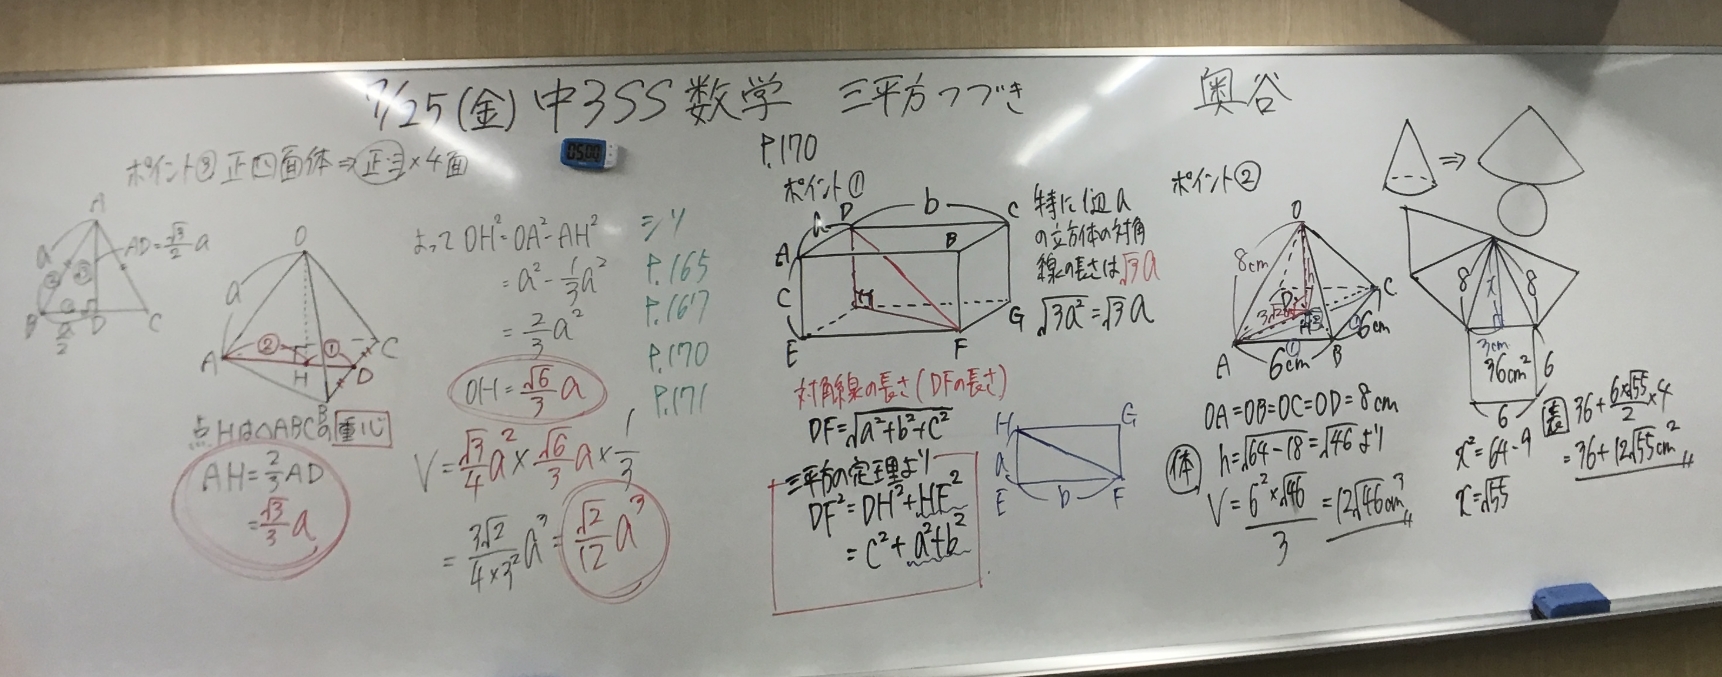 7/25(金) 中3SS 数学 三平方つづき 奥谷
05:00
ポイント③ 正四面体⇒正三×4面
A
a
AD=√3/2 a
② √3
①
B a/2 D C
O
a
A ② ① C
H D
B
点Hは△ABCの重心
AH=2/3 AD
=√3/3 a
よって OH²=OA²-AH²
=a²-1/3 a²
=2/3 a²
OH=√6/3 a
V=√3/4 a²×√6/3 a×1/3
=3√2/4×3² a³=√2/12 a³
シリ
P.165
P.167
P.170
P.171
P.170
ポイント①
a D b C
A B
C H G
E F
特に1辺a
の立方体の対角
線の長さは√3a
√3a²=√3a
対角線の長さ(DFの長さ)
DF=√a²+b²+c²
三平方の定理より
DF²=DH²+HF²
=c²+a²+b²
H G
a
E b F
ポイント②
⇒
O
8cm h
D C
3√2 H 6cm
A 6cm B
OA=OB=OC=OD=8cm
体 h=√64-18=√46より
V=6²×√46/3=12√46cm³
8 x 8
3cm
36cm² 6
6
x²=64-9
x=√55
表 36+6×√55/2×4
=36+12√55cm²